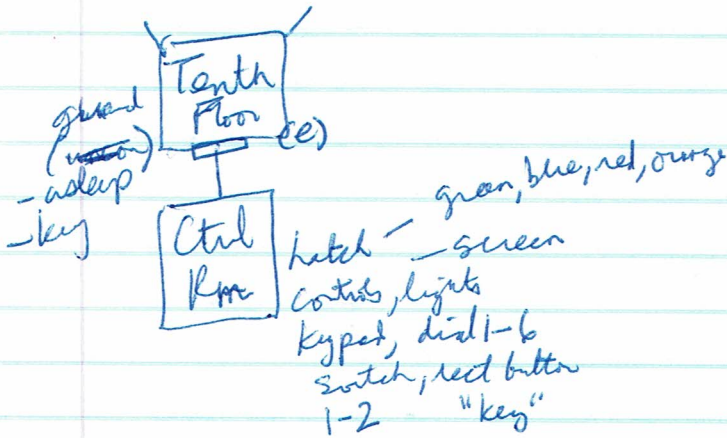 Tenth
Floor
guard
(e)
- asleep
- key
Ctrl
Rm
hatch - green, blue, red, orange
- screen
controls, lights
keypad, dial 1-6
switch, rect button
1-2 "key"